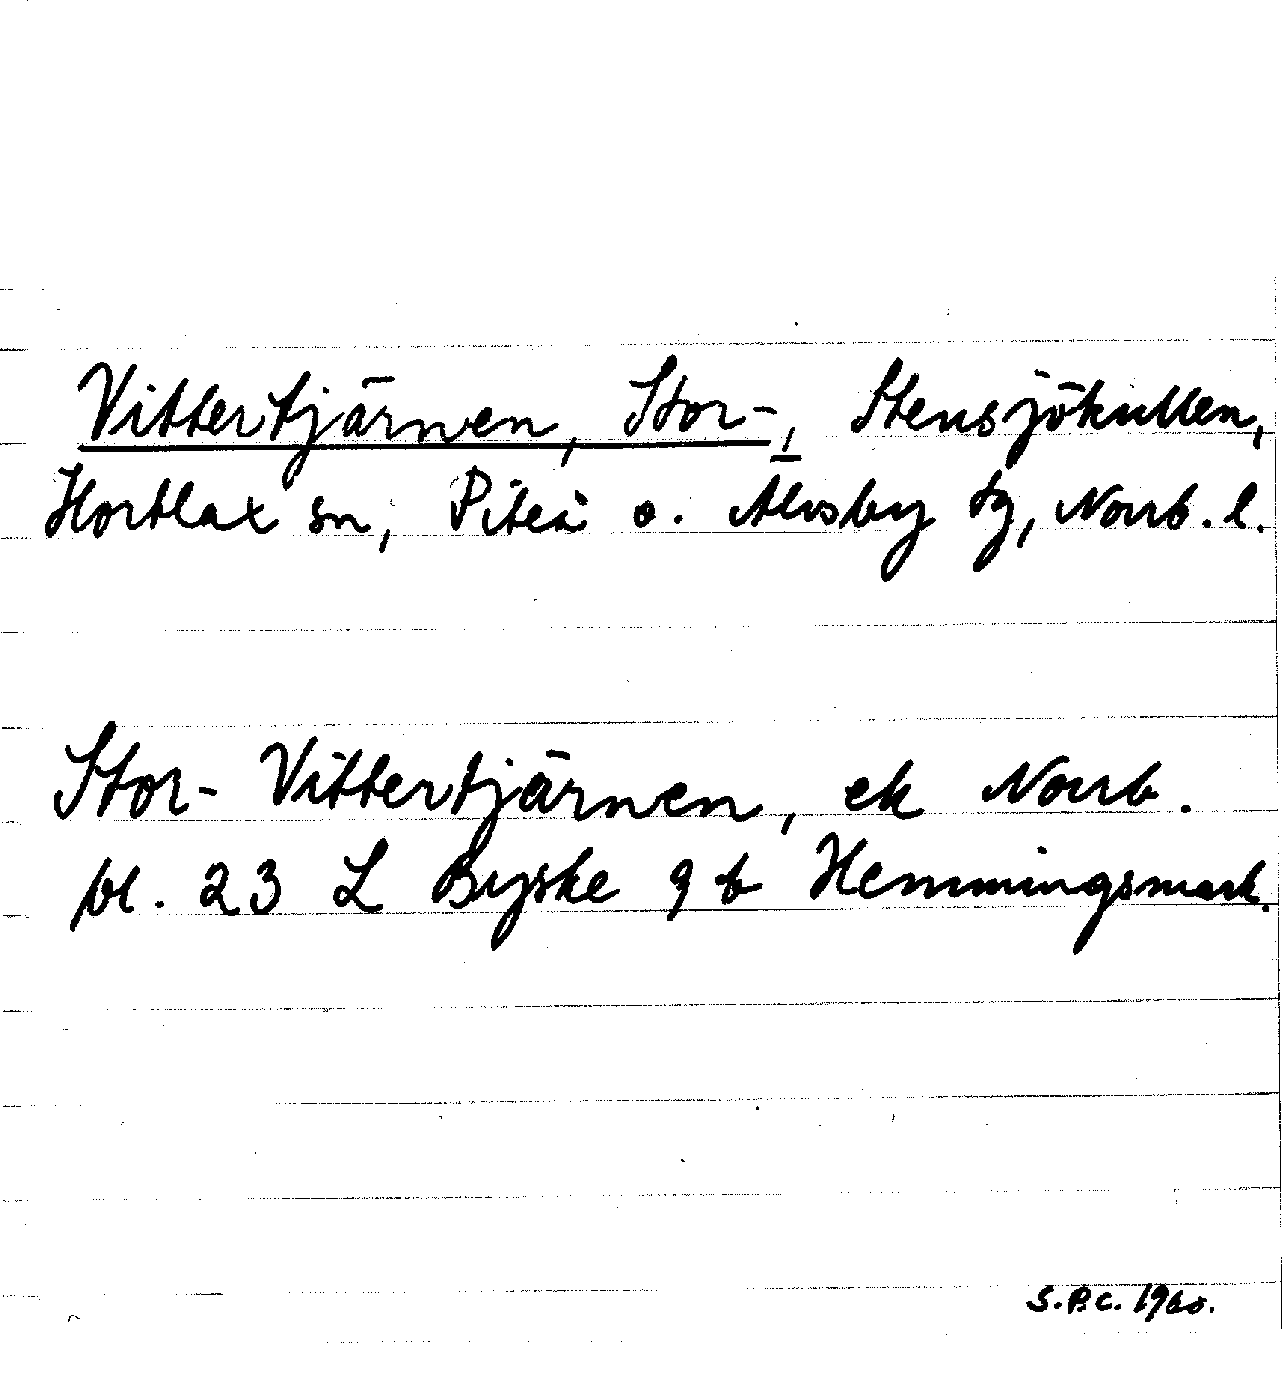 Vittertjärnen, Stor-, Stensjökullen,
Hortlax sn, Piteå o. Älvsby tg, Norrb. l.
Stor-Vittertjärnen, ek Norrb.
bl. 23 L Byske 9 b Hemmingsmark.
S.P.C. 1960.